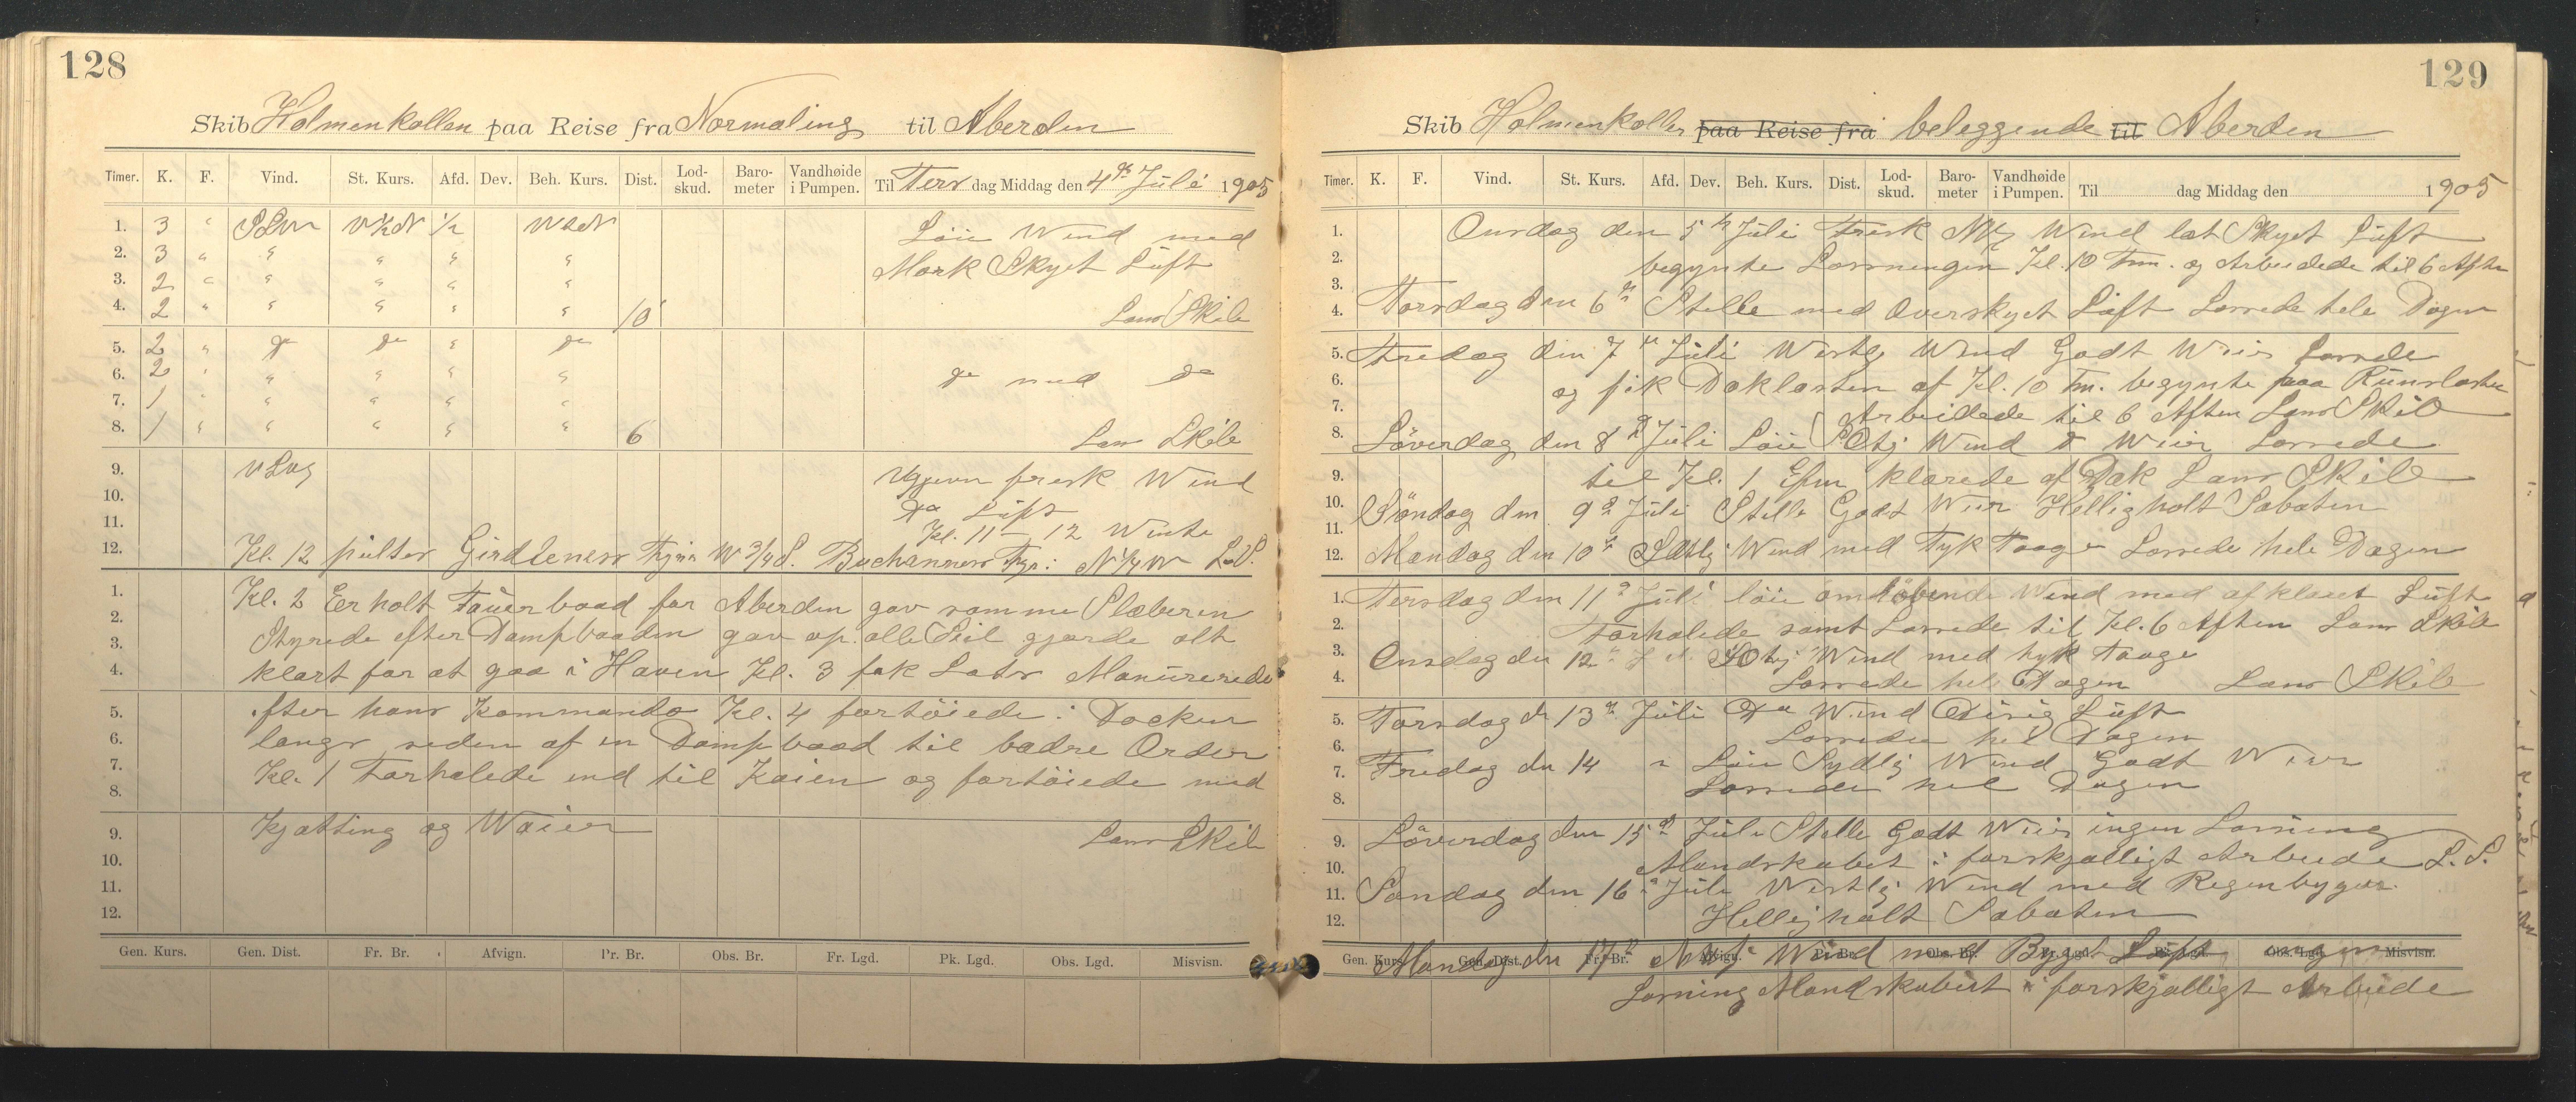 128
Skib Holmenkollen paa Reise fra Normaling til Aberden
Timer. K. F. Vind. St. Kurs. Afd. Dev. Beh. Kurs. Dist. Lod-skud. Baro-meter Vandhøide i Pumpen. Til Ters dag Middag den 4de Juli 1905
1. 3 " SSW W½N ½ WtN Löi Wind med
2. 3 " " " " " Mørk Skyet Luft
3. 2 " " " " "
4. 2 " " " " " 10 Lans Skib
5. 2 " do do " do
6. 2 " " " " " do med do
7. 1 " " " " "
8. 1 " " " " " 6 Lans Skib
9. frisk Wind
10. do Luft
11. Kl. 11 – 12
12. Kl. 12 peilter Girdleness Fyr i W 3/4 S. Buchanness Fyr i N 1/4 W L.S.
1. Kl. 2 Erholt Tauerbaad for Aberden gav samme Slæberen
2. Styrede efter Dampbaaden gav op alle Seil gjorde alt
3. klart for at gaa i Haven Kl. 3 fik Lots Manurerede
4.
5. efter hans Kommando Kl. 4 fortøiede i Docken
6. langs siden af en Dampbaad til bædre Order
7. Kl. 1 Forhalede ind til Kaien og fortøiede med
8.
9. Kjætting og Waier Lans Skib
10.
11.
12.
Gen. Kurs. Gen. Dist. Fr. Br. Afvign. Pr. Br. Obs. Br. Fr. Lgd. Pk. Lgd. Obs. Lgd. Misvisn.
129
Skib Holmenkollen paa Reise fra beleggende til Aberden
Timer. K. F. Vind. St. Kurs. Afd. Dev. Beh. Kurs. Dist. Lod-skud. Baro-meter Vandhøide i Pumpen. Til dag Middag den 1905
1. Onsdag den 5te Juli Frisk Wind let Skyet Luft
2. begynte Lossningen Kl. 10 Fm. og Arbeidede til 6 Aften
3.
4. Torsdag den 6te Stille med Overskyet Luft Lossede hele Dagen
5. Fredag den 7de Juli Westlig Wind Godt Weir Lossede
6. og fik Dækslasten af Kl. 10 Fm. begynte paa Rumslasten
7. Arbeidede til 6 Aften Lans Skib
8. Løverdag den 8de Juli Löi SOtlig Wind G Weir Lossede
9. til Kl. 1 Efm klarede af Dæk Lans Skib
10. Søndag den 9de Juli Stille Godt Weir Helligholt Sabaten
11.
12. Mandag den 10de Wind med Tyk Taage Lossede hele Dagen
1. Tersdag den 11te Juli löi omløbende Wind med afklaret Luft
2. Forhalede samt Lossede til Kl. 6 Aften Lans Skib
3. Onsdag den 12te SOtlig Wind med tyk Taage
4. Lossede hele Dagen Lans Skib
5. Torsdag d 13de Juli Do Wind Disig Luft
6. Lossede hel Dagen
7. Fredag den 14 " Löi Sydlig Wind Godt Weir
8. Lossede hel Dagen
9. Løverdag den 15de Juli Stille Godt Weir ingen Lossning
10. Mandskabet i forskjælligt Arbeide L. S.
11. Søndag den 16de Juli Westlig Wind med Regenbyger
12. Helligholt Sabaten
Gen. Kurs. Gen. Dist. Fr. Br. Afvign. Pr. Br. Obs. Br. Fr. Lgd. Pk. Lgd. Obs. Lgd. Misvisn.
Mandag den 17de Wind med Byget Luft ingen
Lossning Mandskabet i forskjælligt Arbeide